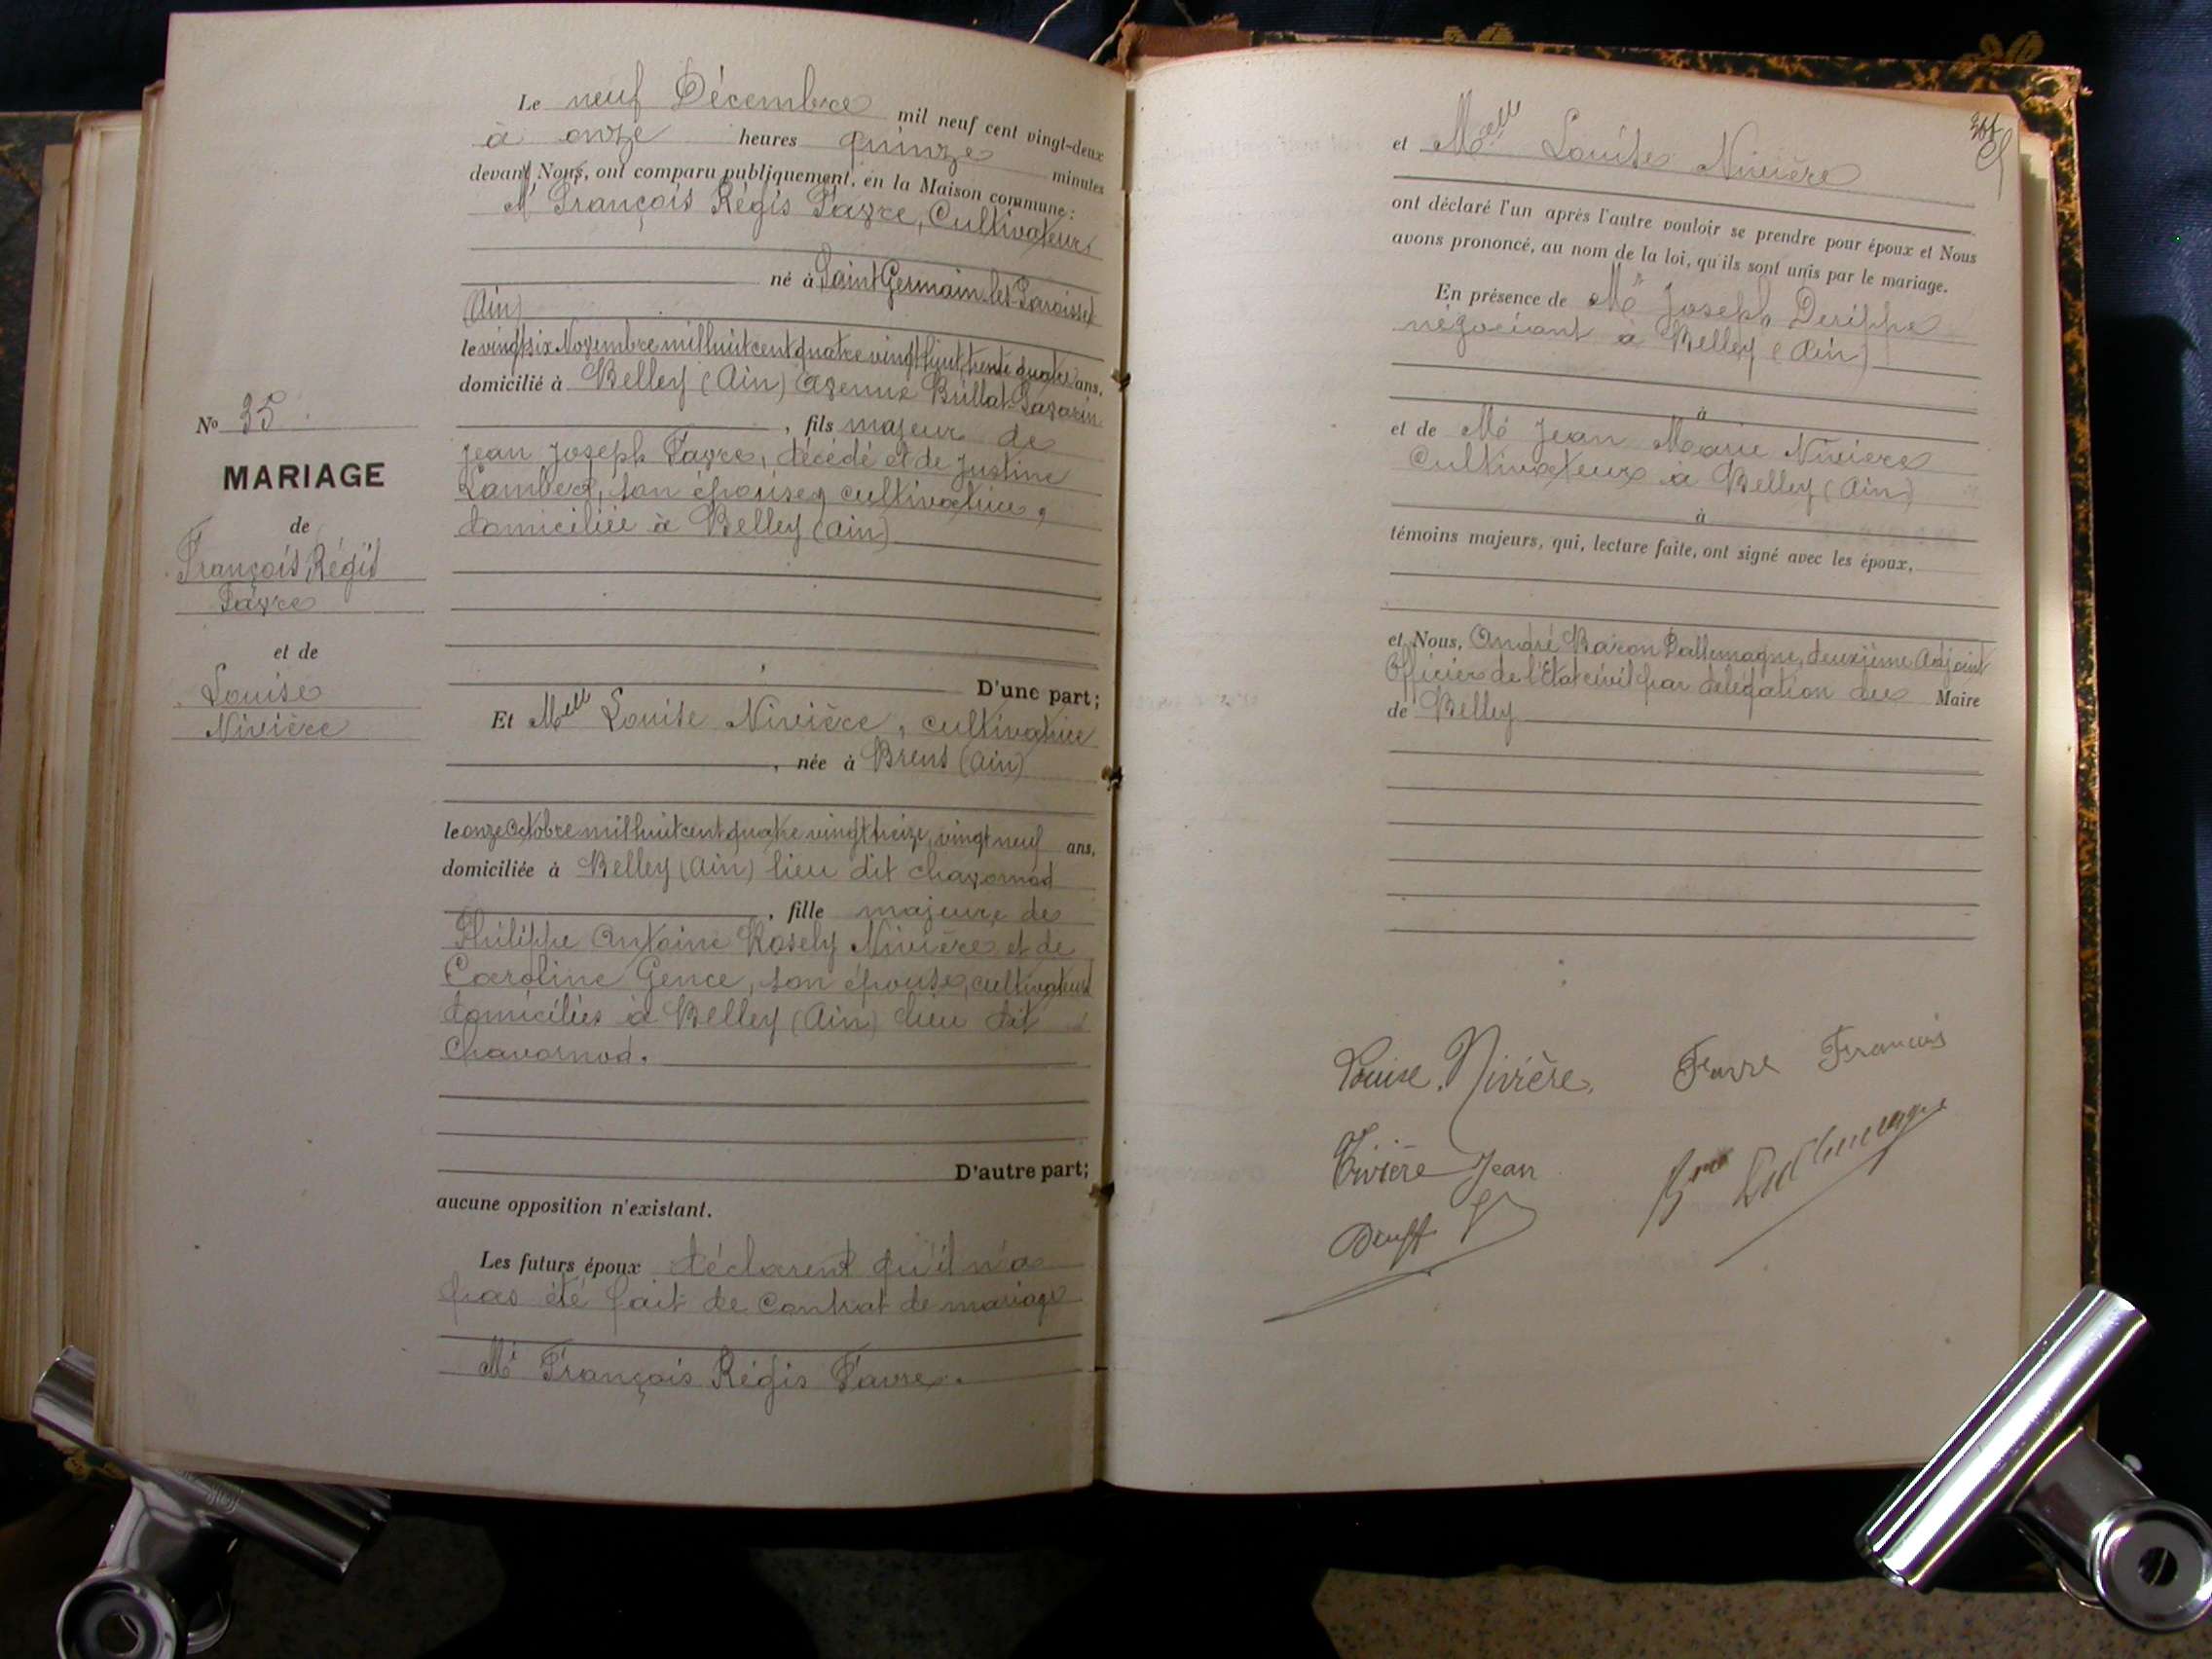 Le neuf Décembre mil neuf cent vingt-deux
à onze heures quinze minutes
devant Nous, ont comparu publiquement, en la Maison commune :
Mr François Régis Favre, Cultivateur
né à Saint Germain les Paroisses
(Ain)
le vingt six Novembre mil huit cent quatre vingt huit, trente quatre ans,
domicilié à Belley (Ain) avenue Brillat-Savarin
, fils majeur de
Jean Joseph Favre, décédé et de Justine
Lambert, son épouse, cultivatrice,
domiciliée à Belley (Ain)
D'une part;
No 35
MARIAGE
de
François Régis
Favre
et de
Louise
Nivière
Et Melle Louise Nivière, cultivatrice
, née à Brens (Ain)
le onze Octobre mil huit cent quatre vingt treize, vingt neuf ans,
domiciliée à Belley (Ain) lieu dit Chavornod
, fille majeure de
Philippe Antoine Rosely Nivière et de
Caroline Gence, son épouse, cultivateurs
domiciliés à Belley (Ain) lieu dit
Chavornod.
D'autre part;
aucune opposition n'existant.
Les futurs époux déclarent qu'il n'a
pas été fait de contrat de mariage
Mr François Régis Favre.
et Melle Louise Nivière
ont déclaré l'un après l'autre vouloir se prendre pour époux et Nous
avons prononcé, au nom de la loi, qu'ils sont unis par le mariage.
En présence de Mr Joseph Derippe
négociant à Belley (Ain)
à
et de Mr Jean Marie Nivière
Cultivateur à Belley (Ain)
à
témoins majeurs, qui, lecture faite, ont signé avec les époux,
et Nous, André Baron Dallemagne, deuxième Adjoint
Officier de l'Etat civil par délégation du Maire
de Belley
Louise Nivière Favre François
Nivière Jean
Bon Dallemagne